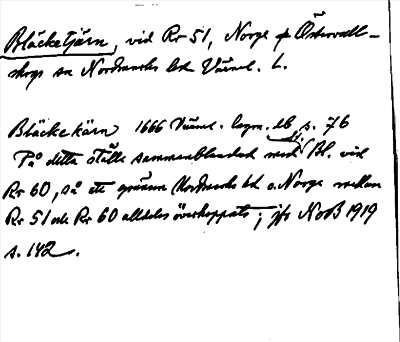 Bläcketjärn, vid Rr 51, Norge o Östervall-
skogs sn Nordmarks hd Värml. L.
Bläckekärn 1666 Värml. lagm. db s. 76
På detta ställe sammanblandad med Bl. vid
Rr 60, så att gränsen Nordmarks hd o. Norge mellan
Rr 51 och Rr 60 alldeles överhoppats; jfr NoB 1919
s. 142.